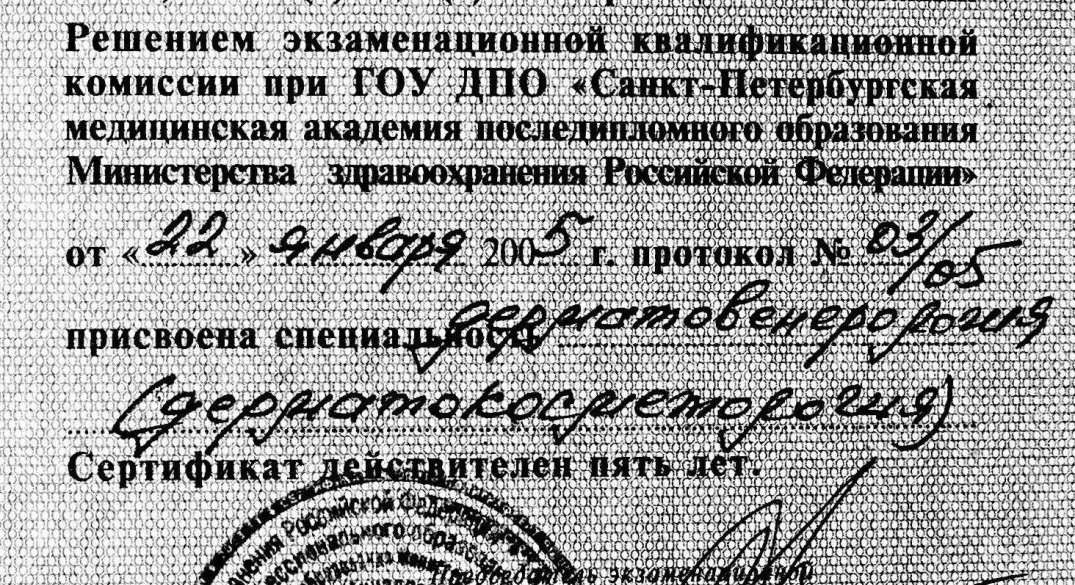 Решением экзаменационной квалификационной
комиссии при ГОУ ДПО «Санкт-Петербургская
медицинская академия последипломного образования
Министерства здравоохранения Российской Федерации»
от «22» января 2005 г. протокол № 03/05
присвоена специальность дерматовенерология
(дерматокосметология)
Сертификат действителен пять лет.
Российской Федерации
Председатель экзаменационной